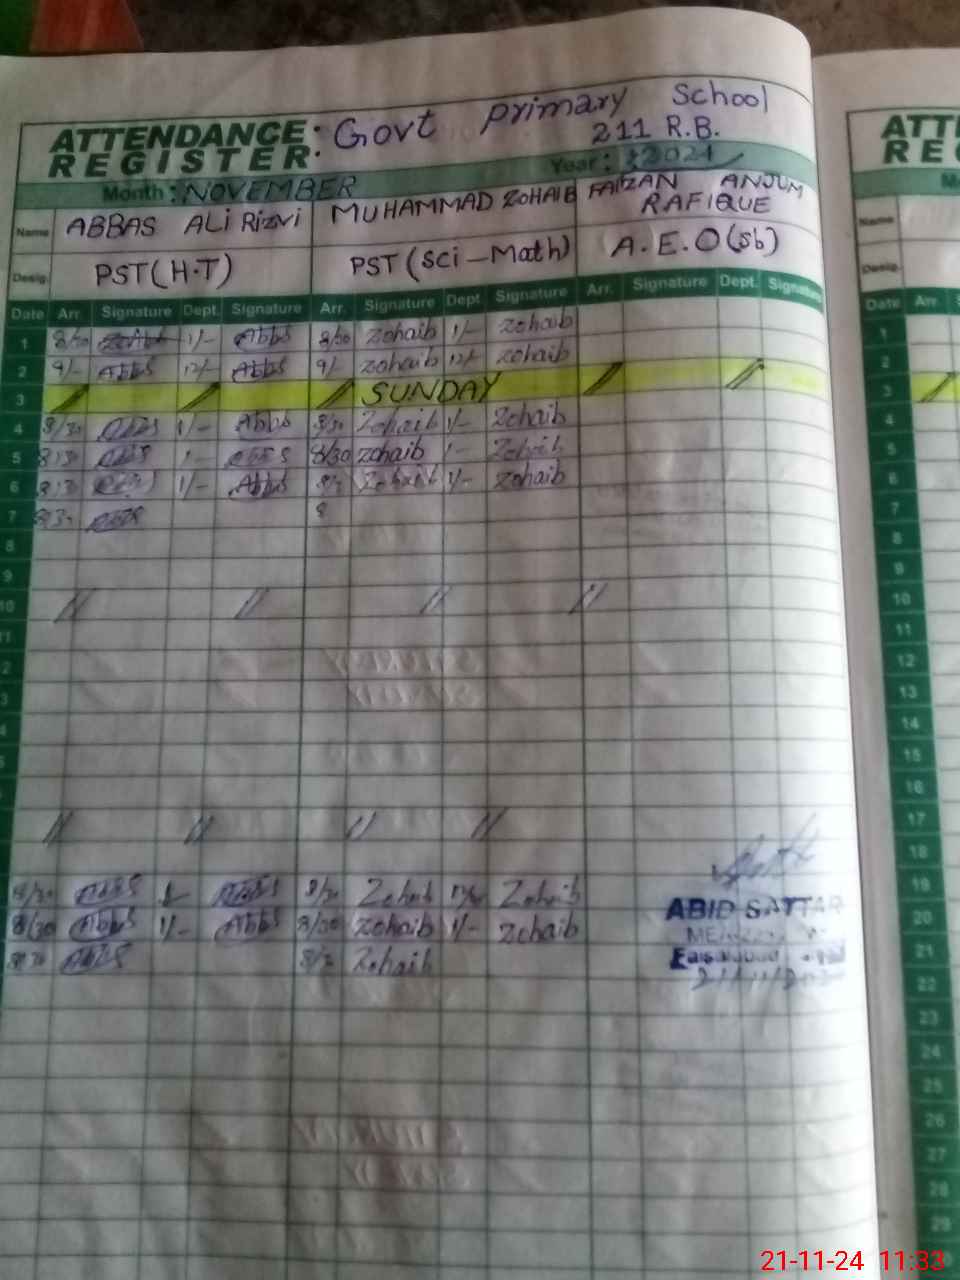 ATTENDANCE REGISTER: Govt Primary School
211 R.B.
Month: NOVEMBER Year: 2024
Name ABBAS ALi Rizvi MUHAMMAD ZOHAIB FAIZAN ANJUM RAFIQUE
Desig. PST(H.T) PST (Sci-Math) A.E.O(Sb)
Date Arr. Signature Dept. Signature Arr. Signature Dept. Signature Arr. Signature Dept. Signature
1 8/30 1/- Abbs 8/30 Zohaib 1/- Zohaib
2 9/- Abbs 12/- Abbs 9/- Zohaib 12/- Zohaib
3 // // // SUNDAY // //
4 8/30 Abbs 1/- Abbs 8/30 Zohaib 1/- Zohaib
5 8/30 Abbs Abbs 8/30 Zohaib Zohaib
6 8/30 Abbs 1/- Abbs Zohaib 1/- Zohaib
7 Abbs 8
8
9
10 // // // //
11
2
3
4
5
// // // //
8/30 Abbs Abbs 8/30 Zohaib Zohaib
8/30 Abbs 1/- Abbs 8/30 Zohaib 1/- Zohaib
Abbs Zohaib
ABID SATTAR
21/11/
ATTE
RE
Name
Desig.
Date Arr.
1
2
3 /
4
5
6
7
8
9
10
11
12
13
14
15
16
17
18
19
20
21
22
23
24
25
26
27
28
29
21-11-24 11:33